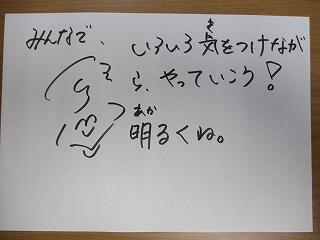 みんなで、いろいろ気をつけなが
ら、やっていこう!
明るくね。